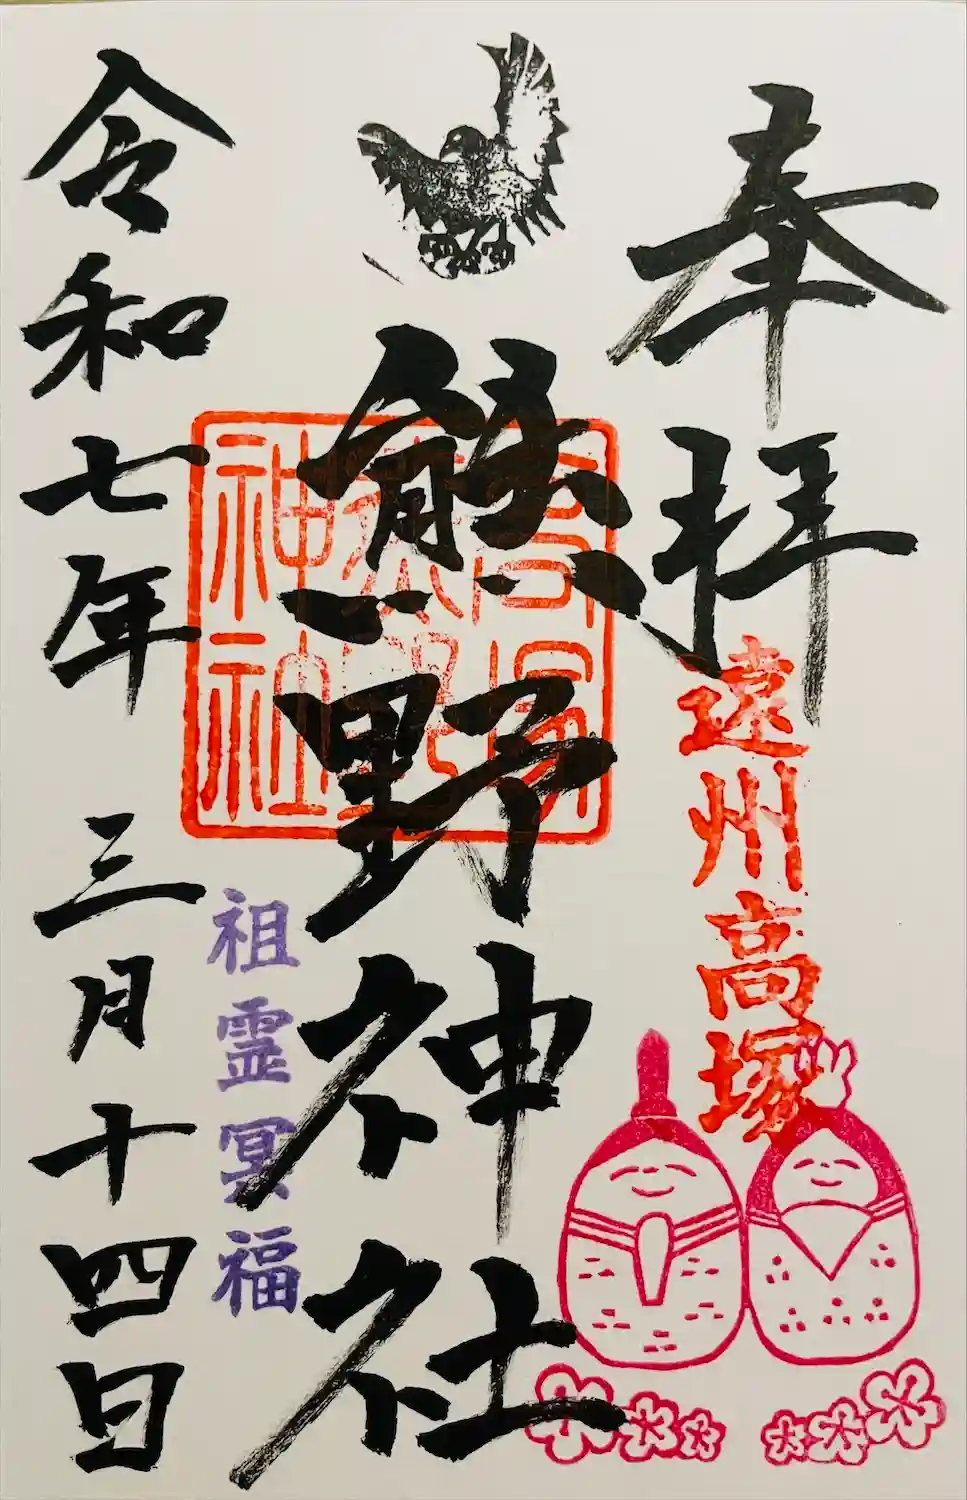 奉拝
遠州高塚
熊野神社
高塚
神社
祖霊冥福
令和七年三月十四日